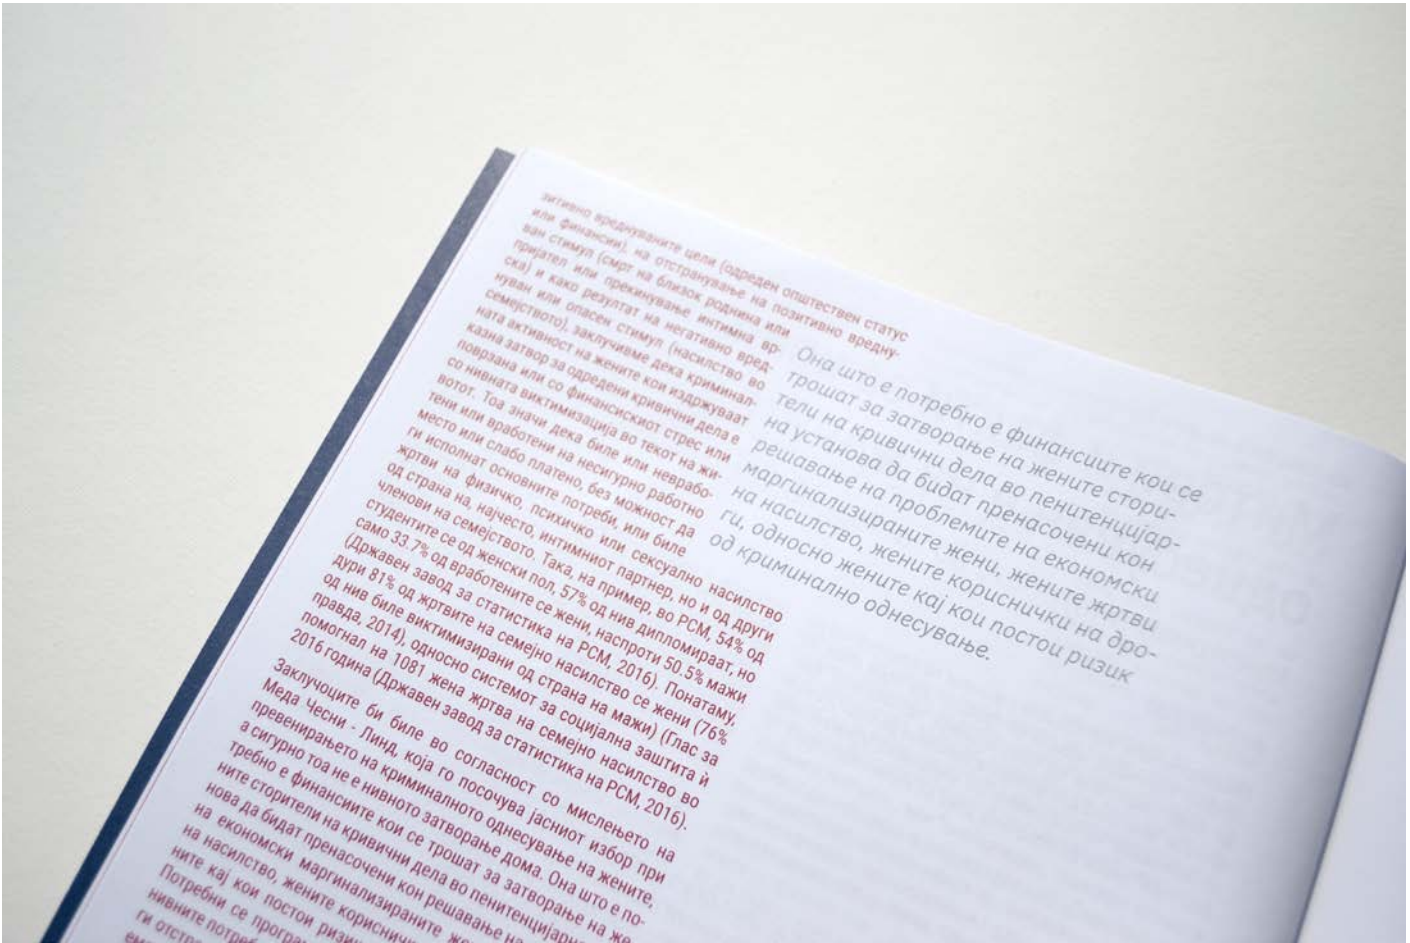 зитивно вреднуваните цели (одреден општествен статус
или финансии), на отстранување на позитивно вредну-
ван стимул (смрт на близок роднина или
пријател или прекинување интимна вр-
ска) и како резултат на негативно вред-
нуван или опасен стимул (насилство во
семејството), заклучивме дека криминал-
ната активност на жените кои издржуваат
казна затвор за одредени кривични дела е
поврзана или со финансискиот стрес или
со нивната виктимизација во текот на жи-
вотот. Тоа значи дека биле или неврабо-
тени или вработени на несигурно работно
место или слабо платено, без можност да
ги исполнат основните потреби, или биле
жртви на физичко, психичко или сексуално насилство
од страна на, најчесто, интимниот партнер, но и од други
членови на семејството. Така, на пример, во РСМ, 54% од
студентите се од женски пол, 57% од нив дипломираат, но
само 33.7% од вработените се жени, наспроти 50.5% мажи
(Државен завод за статистика на РСМ, 2016). Понатаму,
дури 81% од жртвите на семејно насилство се жени (76%
од нив биле виктимизирани од страна на мажи) (Глас за
правда, 2014), односно системот за социјална заштита ѝ
помогнал на 1081 жена жртва на семејно насилство во
2016 година (Државен завод за статистика на РСМ, 2016).
Заклучоците би биле во согласност со мислењето на
Меда Чесни - Линд, која го посочува јасниот избор при
превенирањето на криминалното однесување на жените,
а сигурно тоа не е нивното затворање дома. Она што е по-
требно е финансиите кои се трошат за затворање на же-
ните сторители на кривични дела во пенитенцијарна
нова да бидат пренасочени кон решавање на
на економски маргинализираните же
на насилство, жените корисничк
ните кај кои постои ризи
Потребни се програ
нивните потреб
ги отстр
Она што е потребно е финансиите кои се
трошат за затворање на жените стори-
тели на кривични дела во пенитенцијар-
на установа да бидат пренасочени кон
решавање на проблемите на економски
маргинализираните жени, жените жртви
на насилство, жените кориснички на дро-
ги, односно жените кај кои постои ризик
од криминално однесување.